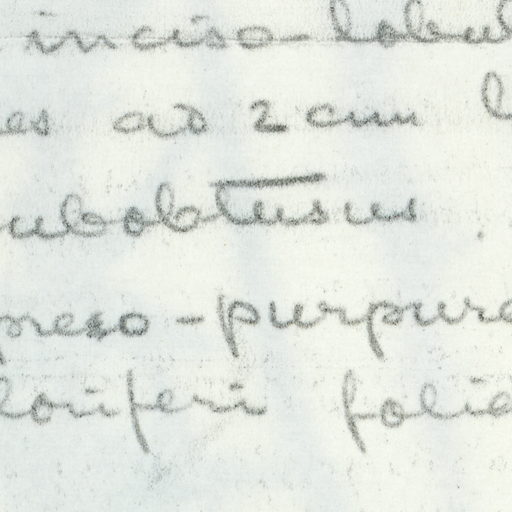 inciso-lobul
es ad 2 cm l
ubobtusus.
neso-purpure
loriferi folia